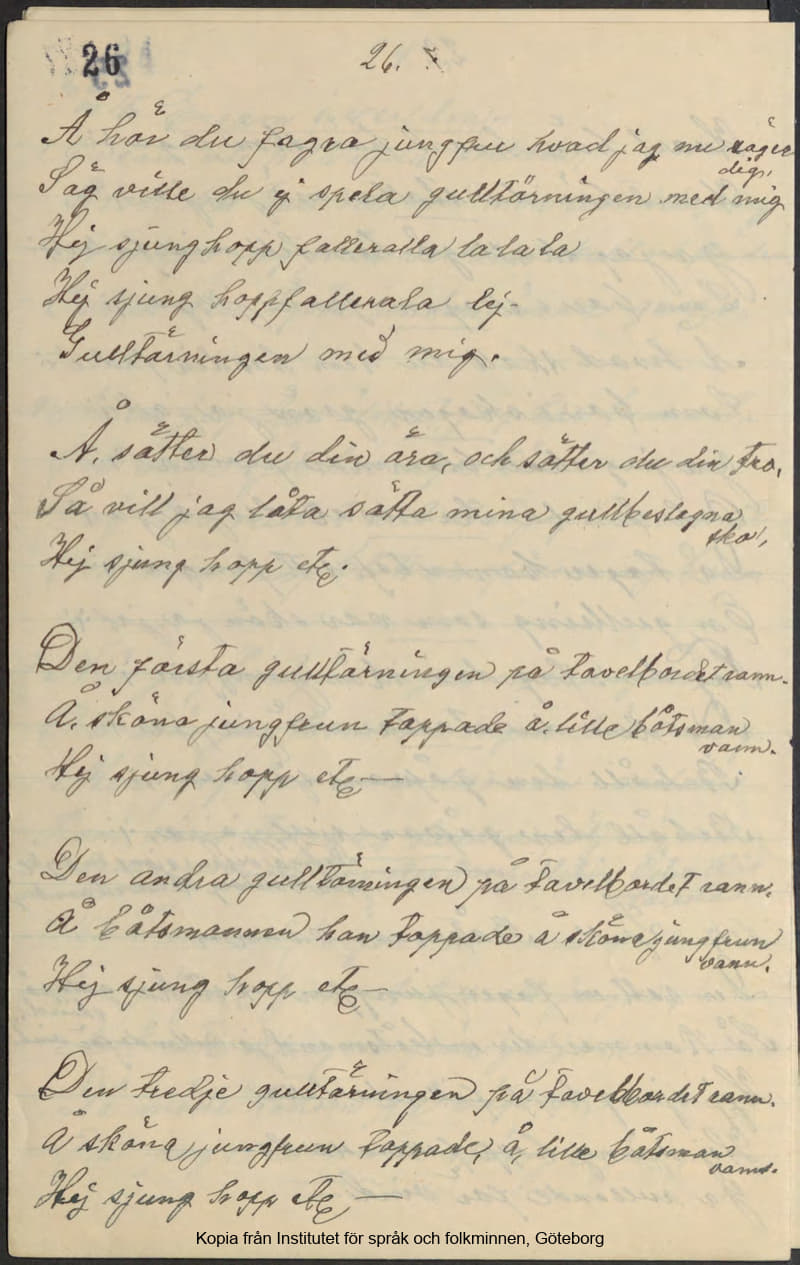 26
26.
Å hör du fagra jungfru hvad jag nu säger
dig,
Säg ville du ej spela gulltärningen med mig
Hej sjung hopp falleralla la la la
Hej sjung hoppfallerala lej-
Gulltärningen med mig.
Å, sätter du din ära, och sätter du din tro,
Så vill jag låta sätta mina gullbeslagna
skor,
Hej sjung hopp etc.
Den första gulltärningen på tavelbordet rann.
Å, sköna jungfrun tappade å, lille båtsman
vann.
Hej sjung hopp etc —
Den andra gulltärningen på tavelbordet rann.
Å båtsmannen han tappade å sköna jungfrun
vann.
Hej sjung hopp etc —
Den tredje gulltärningen på tavelbordet rann.
Å sköna jungfrun tappade, å, lille båtsman
vann.
Hej sjung hopp etc —
Kopia från Institutet för språk och folkminnen, Göteborg